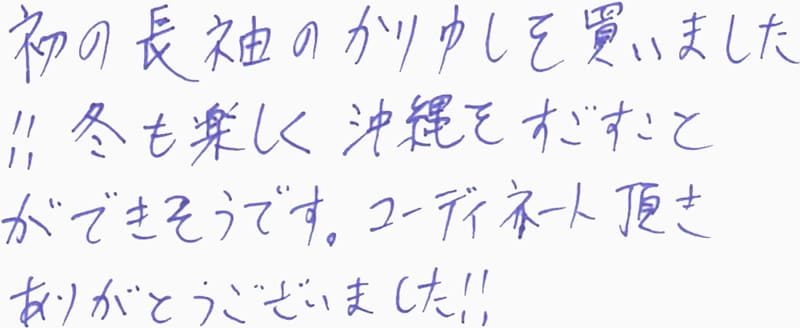 初の長袖のかりゆしを買いました
!!冬も楽しく沖縄をすごすこと
ができそうです。コーディネート頂き
ありがとうございました!!